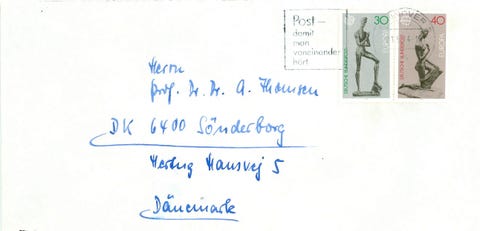 Post –
damit
man
voneinander
hört
30
DEUTSCHE BUNDESPOST
EUROPA
40
DEUTSCHE BUNDESPOST
EUROPA
Herrn
Prof. Dr. Dr. A. Thomsen
DK 6400 Sönderborg
Hertug Hansvej 5
Dänemark